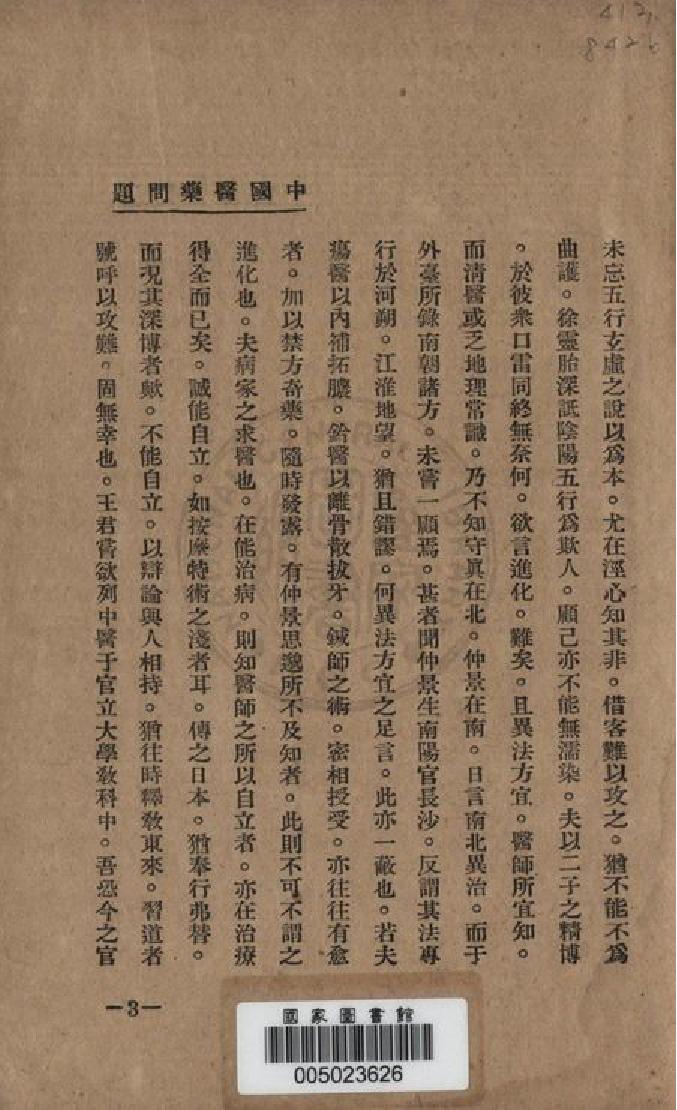 中國醫藥問題
未忘五行玄虛之說以爲本。尤在涇心知其非。借客難以攻之。猶不能不爲
曲護。徐靈胎深詆陰陽五行爲欺人。顧己亦不能無濡染。夫以二子之精博
。於彼衆口雷同終無奈何。欲言進化。難矣。且異法方宜。醫師所宜知。
而淸醫或乏地理常識。乃不知守眞在北。仲景在南。日言南北異治。而于
外臺所錄南朝諸方。未嘗一顧焉。甚者聞仲景生南陽官長沙。反謂其法專
行於河朔。江淮地望。猶且錯謬。何異法方宜之足言。此亦一蔽也。若夫
瘍醫以內補拓膿。鈴醫以離骨散拔牙。鍼師之術。密相授受。亦往往有愈
者。加以禁方奇藥。隨時發露。有仲景思邈所不及知者。此則不可不謂之
進化也。夫病家之求醫也。在能治病。則知醫師之所以自立者。亦在治療
得全而已矣。誠能自立。如按摩特術之淺者耳。傳之日本。猶奉行弗替。
而况其深博者歟。不能自立。以辯論與人相持。猶往時釋敎東來。習道者
號呼以攻難。固無幸也。王君嘗欲列中醫于官立大學敎科中。吾恐今之官
—3—
國家圖書館
005023626